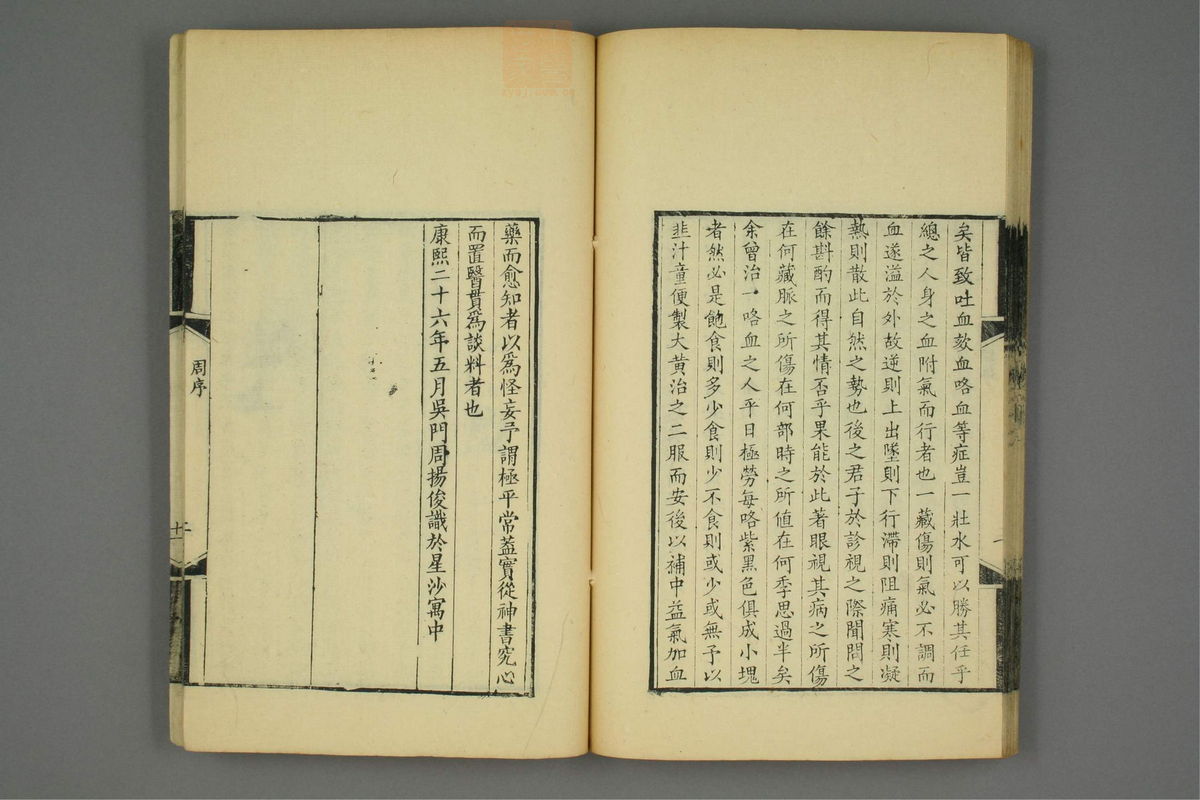 矣皆致吐血欬血咯血等症豈一壯水可以勝其任乎
總之人身之血附氣而行者也一藏傷則氣必不調而
血遂溢於外故逆則上出墜則下行滯則阻痛寒則凝
熱則散此自然之勢也後之君子於診視之際聞問之
餘斟酌而得其情否乎果能於此著眼視其病之所傷
在何藏脈之所傷在何部時之所值在何季思過半矣
余曾治一咯血之人平日極勞每咯紫黑色俱成小塊
者然必是飽食則多少食則少不食則或少或無予以
韭汁童便製大黃治之二服而安後以補中益氣加血
藥而愈知者以為怪妄予謂極平常蓋實從神書究心
而置醫貫為談料者也
康熙二十六年五月吳門周揚俊識於星沙寓中
周序